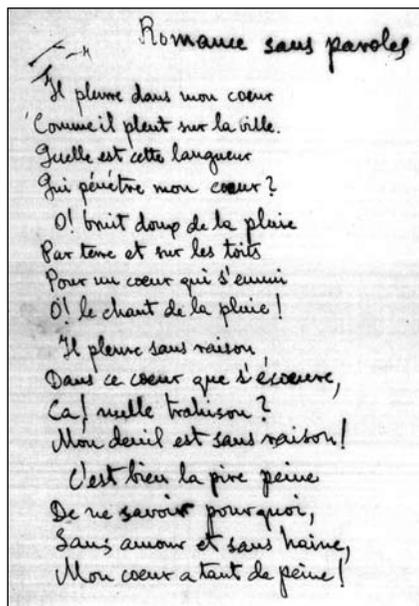 Romance sans paroles
Il pleure dans mon coeur
Comme il pleut sur la ville.
Quelle est cette langueur
Qui pénètre mon coeur ?
O! bruit doup de la pluie
Par terre et sur les toits
Pour un coeur qui s'ennui
O! le chant de la pluie !
Il pleure sans raison
Dans ce coeur que s'écoeure,
Ca! nulle trahison ?
Mon deuil est sans raison !
C'est bien la pire peine
De ne savoir pourquoi,
Sans amour et sans haine,
Mon coeur a tant de peine !